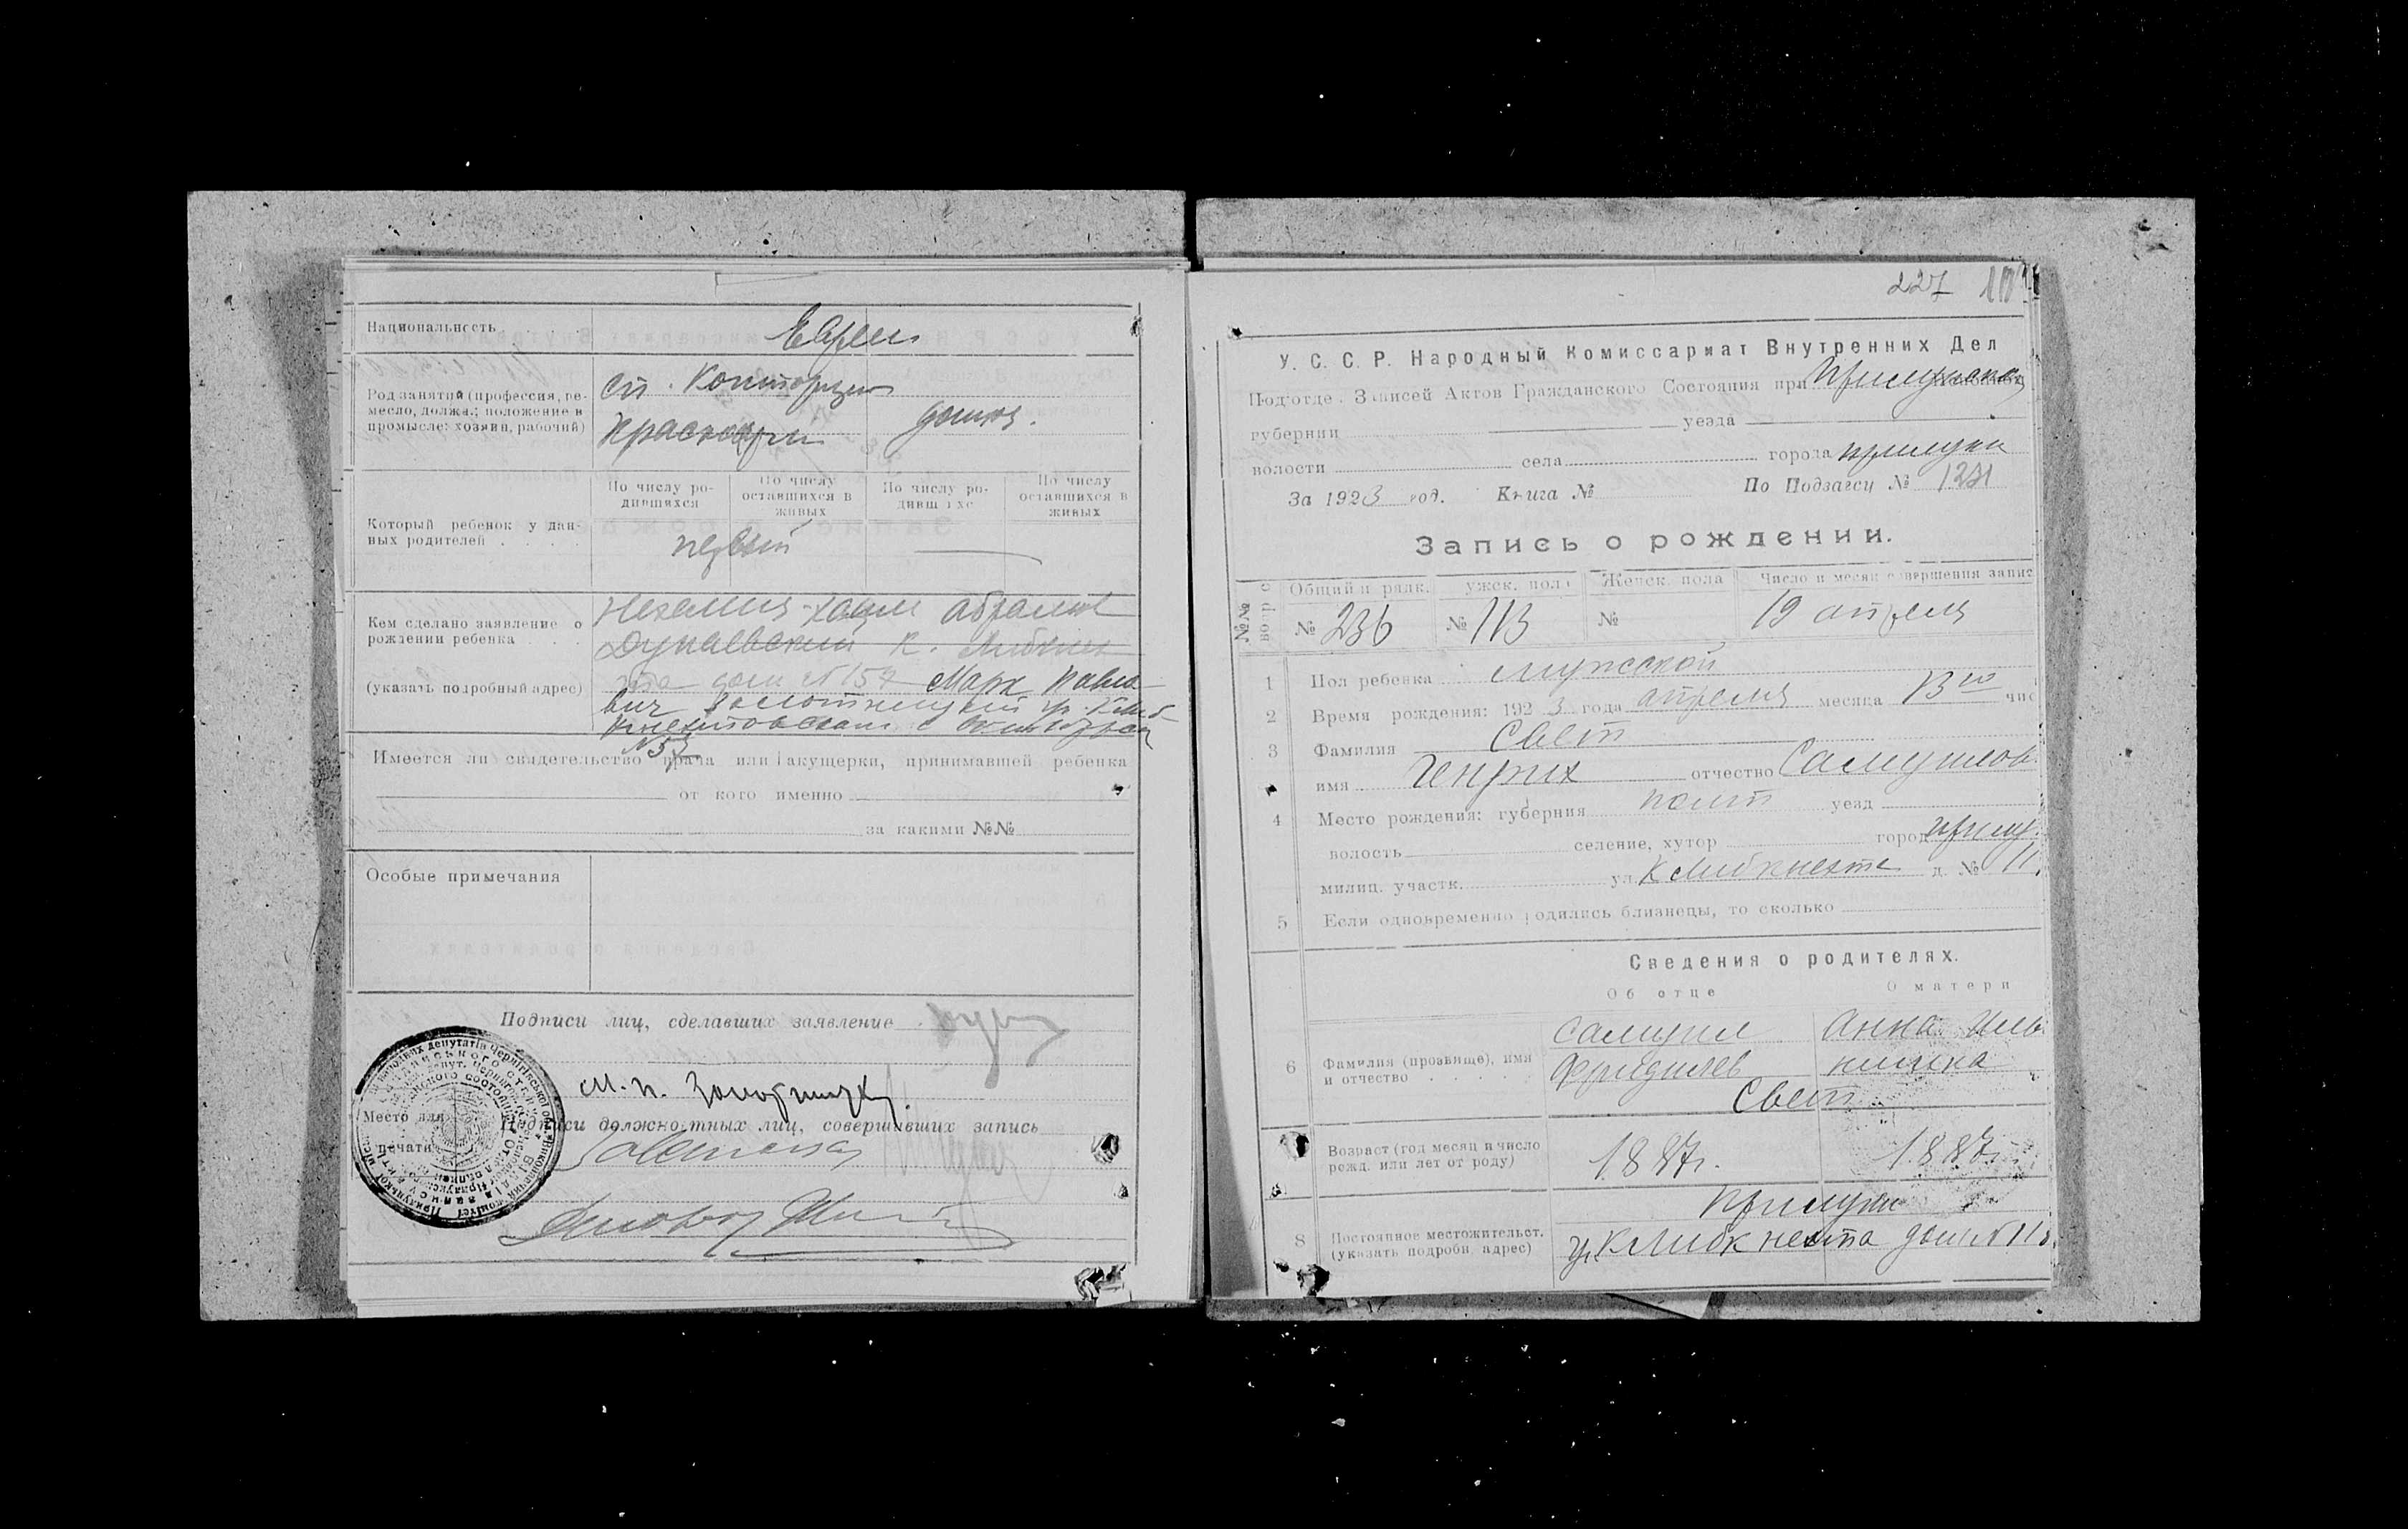 Национальность
Евреи
Род занятий (профессия, ре-
месло, должн.; положение в
промысле: хозяин, рабочий)
ст. Конторщик
домхоз.
По числу ро-
дившихся
По числу
оставшихся в
живых
По числу ро-
дивш хс
По числу
оставшихся в
живых
Который ребенок у дан-
ных родителей . . . .
первый
Кем сделано заявление о
рождении ребенка . . .
(указать подробный адрес)
Нехемия-хаим абрамов
Дунаевский К. Либкнех
та дом №157 Марк Павло
вич Золотницкий ул. К Либ
кнехтовская
№53
Имеется ли свидетельство врача или акушерки, принимавшей ребенка
от кого именно
за какими №№
Особые примечания
Подписи лиц, сделавших заявление
М. П. Золотницкий
Место для
печати
Подписи должностных лиц, совершивших запись
227
У. С. С. Р. Народный Комиссариат Внутренних Дел
Подотдел Записей Актов Гражданского Состояния при Прилукском
губернии уезда
волости села города Прилуки
За 1923 год. Книга № По Подзагсу №
Запись о рождении.
№№
Общий порядк. Мужск. пола Женск. пола Число и месяц совершения запис
№ 236 № 113 № 19 апреля
1 Пол ребенка мужской
2 Время рождения: 1923 года апреля месяца 13го чис
3 Фамилия Свет
имя Генрих отчество Самуилов.
4 Место рождения: губерния полт уезд
волость селение, хутор город Прилук.
милиц. участк. ул. К Либкнехта д. № 11
5 Если одновременно родились близнецы, то сколько
Сведения о родителях.
Об отце О матери
6 Фамилия (прозвище), имя
и отчество . . . .
Самуил
Анна Иль
нишна
Свет
Возраст (год месяц и число
рожд. или лет от роду)
1887г. 1887г.
8 Постоянное местожительст.
(указать подробн. адрес)
Прилуки
ул. К Либкнехта дом №